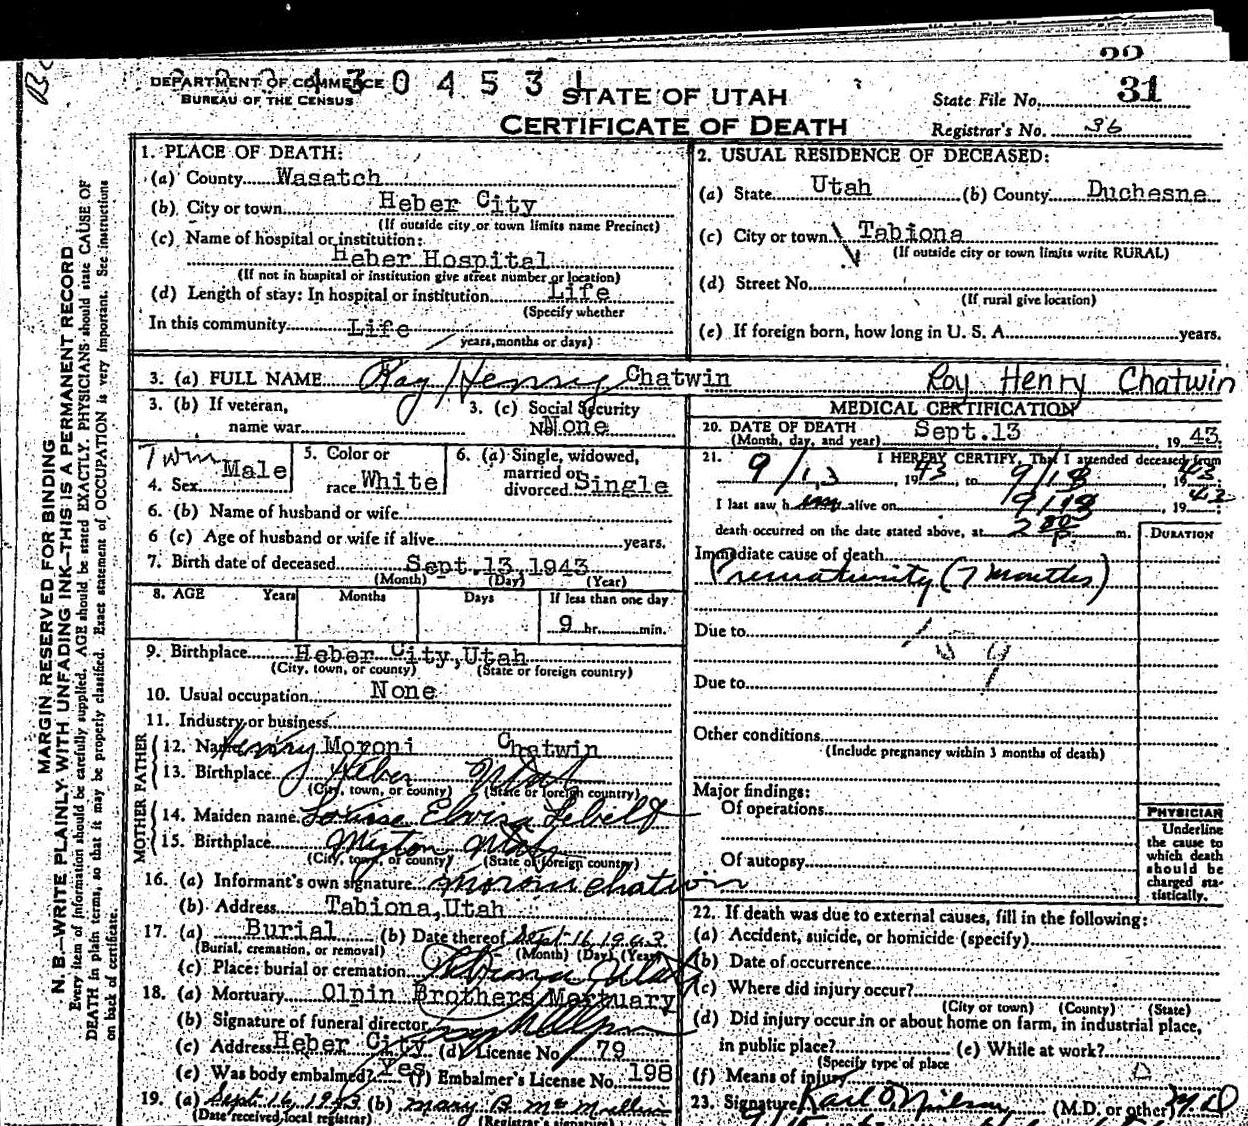 22
DEPARTMENT OF COMMERCE
BUREAU OF THE CENSUS
130453
STATE OF UTAH
CERTIFICATE OF DEATH
State File No. 31
Registrar's No. 36
MARGIN RESERVED FOR BINDING
N. B.—WRITE PLAINLY WITH UNFADING INK—THIS IS A PERMANENT RECORD
Every item of information should be carefully supplied. AGE should be stated EXACTLY. PHYSICIANS should state CAUSE OF
DEATH in plain terms, so that it may be properly classified. Exact statement of OCCUPATION is very important. See instructions
on back of certificate.
1. PLACE OF DEATH:
(a) County Wasatch
(b) City or town Heber City
(If outside city or town limits name Precinct)
(c) Name of hospital or institution:
Heber Hospital
(If not in hospital or institution give street number or location)
(d) Length of stay: In hospital or institution Life
(Specify whether
In this community Life
years, months or days)
2. USUAL RESIDENCE OF DECEASED:
(a) State Utah (b) County Duchesne
(c) City or town Tabiona
(If outside city or town limits write RURAL)
(d) Street No.
(If rural give location)
(e) If foreign born, how long in U. S. A. years.
3. (a) FULL NAME Ray Henry Chatwin Roy Henry Chatwin
3. (b) If veteran,
name war
3. (c) Social Security
No None
Twin
4. Sex Male
5. Color or
race White
6. (a) Single, widowed,
married or
divorced Single
6. (b) Name of husband or wife
6 (c) Age of husband or wife if alive years.
7. Birth date of deceased Sept. 13 1943
(Month) (Day) (Year)
8. AGE Years Months Days If less than one day
9 hr. min.
9. Birthplace Heber City, Utah
(City, town, or county) (State or foreign country)
10. Usual occupation None
11. Industry or business
FATHER
12. Name Henry Moroni Chatwin
13. Birthplace Heber Utah
(City, town, or county) (State or foreign country)
MOTHER
14. Maiden name Louise Elvira
15. Birthplace Utah
(City, town, or county) (State of foreign country)
16. (a) Informant's own signature Moroni Chatwin
(b) Address Tabiona, Utah
17. (a) Burial (b) Date thereof Sept 16, 1943
(Burial, cremation, or removal) (Month) (Day) (Year)
(c) Place: burial or cremation Tabiona Utah
18. (a) Mortuary Olpin Brothers Mortuary
(b) Signature of funeral director
(c) Address Heber City (d) License No 79
(e) Was body embalmed? Yes (f) Embalmer's License No. 198
19. (a) Sept 16, 1943 (b) Mary B McMullin
(Date received local registrar) (Registrar's signature)
MEDICAL CERTIFICATION
20. DATE OF DEATH
(Month, day, and year) Sept. 13 1943
21. I HEREBY CERTIFY, That I attended deceased from
9/13, 1943, to 9/13, 1943
I last saw him alive on 9/13, 1943
death occurred on the date stated above, at 2 00 P m.
DURATION
Immediate cause of death
Prematurity (7 months)
Due to 159
Due to
Other conditions
(Include pregnancy within 3 months of death)
Major findings:
Of operations
Of autopsy
PHYSICIAN
Underline
the cause to
which death
should be
charged sta-
tistically.
22. If death was due to external causes, fill in the following:
(a) Accident, suicide, or homicide (specify)
(b) Date of occurrence
(c) Where did injury occur?
(City or town) (County) (State)
(d) Did injury occur in or about home on farm, in industrial place,
in public place? (e) While at work?
(Specify type of place
(f) Means of injury
23. Signature Karl O. Nielson (M.D. or other) M.D